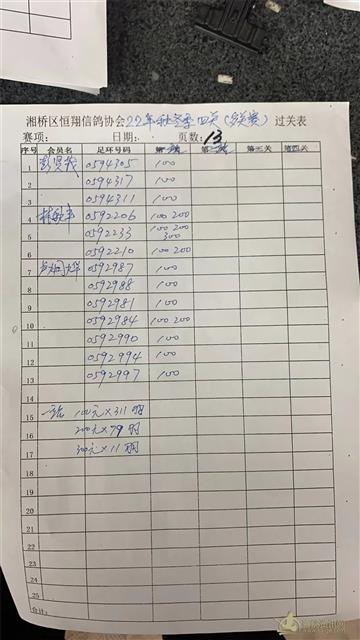 湘桥区恒翔信鸽协会22年秋冬季四关(多关赛) 过关表
赛项: 日期: 页数: 13
序号 会员名 足环号码 第一关 第二关 第三关 第四关
1 0594305 100
2 0594317 100
3 0594311 100
4 0592206 100 200
5 0592233 100 200 300
6 0592210 100 200
7 0592987 100
8 0592988 100
9 0592981 100
10 0592984 100 200
11 0592990 100
12 0592994 100
13 0592997 100
14
15 100元×311羽
16 200元×79羽
17 300元×11羽
18
19
20
21
22
23
24
25
合计: